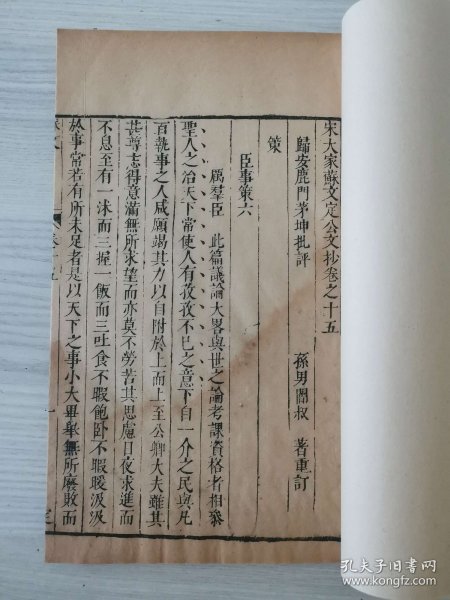 宋大家蘇文定公文抄卷之十五
歸安鹿門茅坤批評 孫男闇叔 著重訂
策
臣事策六
厲羣臣 此篇議論大畧與世之論考課資格者相叅
聖人之治天下常使人有孜孜不已之意下自一介之民與凡
百執事之人咸願竭其力以自附於上而上至公卿大夫雖其
甚尊志得意滿無所求望而亦莫不勞苦其思慮日夜求進而
不息至有一沐而三握一飯而三吐食不暇飽卧不暇暖汲汲
於事常若有所未足者是以天下之事小大畢舉無所廢敗而
孔夫子旧书网
kongfz.com